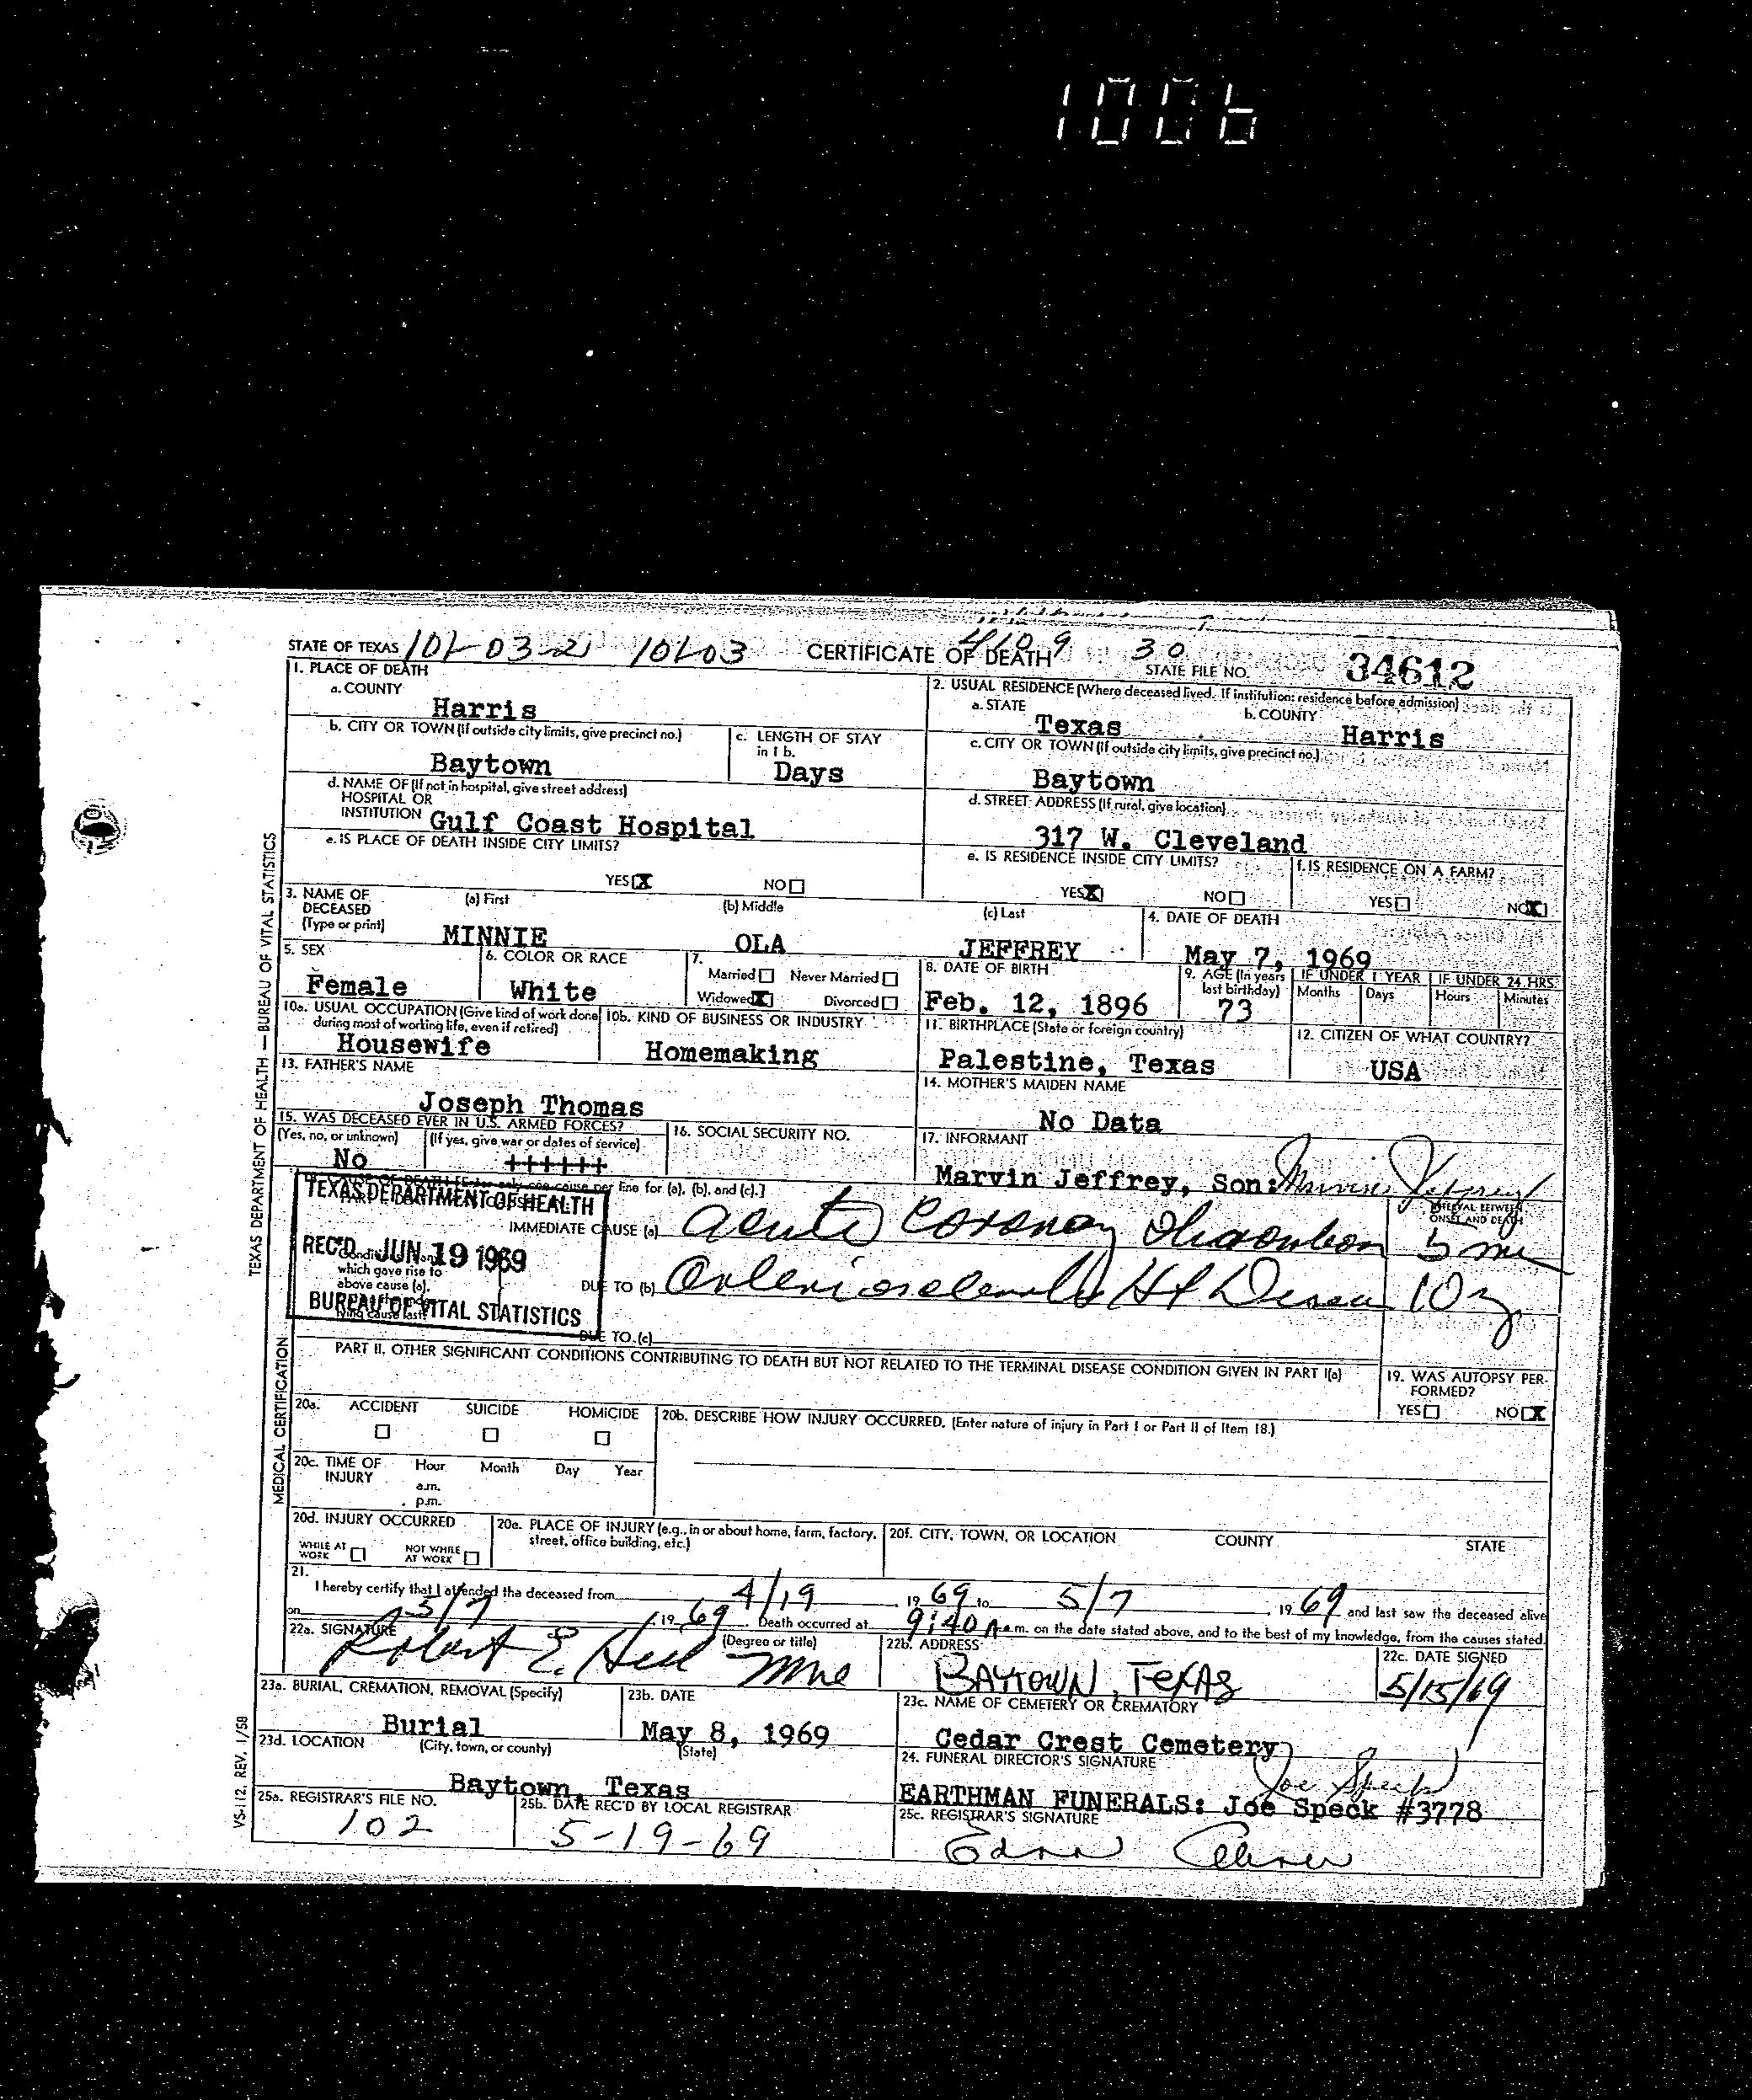 1006
STATE OF TEXAS 101-03-2 101-03 CERTIFICATE OF DEATH 4109 30 STATE FILE NO. 34612
1. PLACE OF DEATH
a. COUNTY
Harris
b. CITY OR TOWN (If outside city limits, give precinct no.)
Baytown
c. LENGTH OF STAY in 1 b.
Days
d. NAME OF (If not in hospital, give street address)
HOSPITAL OR
INSTITUTION Gulf Coast Hospital
e. IS PLACE OF DEATH INSIDE CITY LIMITS?
YES X NO
2. USUAL RESIDENCE (Where deceased lived. If institution: residence before admission)
a. STATE
Texas
b. COUNTY
Harris
c. CITY OR TOWN (If outside city limits, give precinct no.)
Baytown
d. STREET ADDRESS (If rural, give location)
317 W. Cleveland
e. IS RESIDENCE INSIDE CITY LIMITS?
YES X NO
f. IS RESIDENCE ON A FARM?
YES NO X
3. NAME OF DECEASED (Type or print)
(a) First
MINNIE
(b) Middle
OLA
(c) Last
JEFFREY
4. DATE OF DEATH
May 7, 1969
5. SEX
Female
6. COLOR OR RACE
White
7.
Married Never Married
Widowed X Divorced
8. DATE OF BIRTH
Feb. 12, 1896
9. AGE (In years last birthday)
73
IF UNDER 1 YEAR
Months Days
IF UNDER 24 HRS.
Hours Minutes
10a. USUAL OCCUPATION (Give kind of work done during most of working life, even if retired)
Housewife
10b. KIND OF BUSINESS OR INDUSTRY
Homemaking
11. BIRTHPLACE (State or foreign country)
Palestine, Texas
12. CITIZEN OF WHAT COUNTRY?
USA
13. FATHER'S NAME
Joseph Thomas
14. MOTHER'S MAIDEN NAME
No Data
15. WAS DECEASED EVER IN U.S. ARMED FORCES?
(Yes, no, or unknown) (If yes, give war or dates of service)
No ++++++
16. SOCIAL SECURITY NO.
17. INFORMANT
Marvin Jeffrey, Son: Marvin Jeffrey
CAUSE OF DEATH [Enter only one cause per line for (a), (b), and (c).]
TEXAS DEPARTMENT OF HEALTH
REC'D JUN 19 1969
BUREAU OF VITAL STATISTICS
INTERVAL BETWEEN ONSET AND DEATH
IMMEDIATE CAUSE (a) Acute Coronary 5
which gave rise to
above cause (a),
lying cause last.
DUE TO (b) Ht 10
DUE TO (c)
PART II. OTHER SIGNIFICANT CONDITIONS CONTRIBUTING TO DEATH BUT NOT RELATED TO THE TERMINAL DISEASE CONDITION GIVEN IN PART I(a)
19. WAS AUTOPSY PERFORMED?
YES NO X
20a. ACCIDENT SUICIDE HOMICIDE
20b. DESCRIBE HOW INJURY OCCURRED. (Enter nature of injury in Part I or Part II of Item 18.)
20c. TIME OF INJURY Hour Month Day Year
a.m.
p.m.
20d. INJURY OCCURRED
WHILE AT WORK NOT WHILE AT WORK
20e. PLACE OF INJURY (e.g., in or about home, farm, factory, street, office building, etc.)
20f. CITY, TOWN, OR LOCATION COUNTY STATE
21.
I hereby certify that I attended the deceased from 4/19, 19 69 to 5/7, 19 69 and last saw the deceased alive
on 5/7, 19 69. Death occurred at 9:40 A.m. on the date stated above, and to the best of my knowledge, from the causes stated.
22a. SIGNATURE (Degree or title)
Robert E. Hill
22b. ADDRESS
BAYTOWN, TEXAS
22c. DATE SIGNED
5/15/69
23a. BURIAL, CREMATION, REMOVAL (Specify)
Burial
23b. DATE
May 8, 1969
23c. NAME OF CEMETERY OR CREMATORY
Cedar Crest Cemetery
23d. LOCATION (City, town, or county) (State)
Baytown, Texas
24. FUNERAL DIRECTOR'S SIGNATURE
Joe Speck
EARTHMAN FUNERALS: Joe Speck #3778
25a. REGISTRAR'S FILE NO.
102
25b. DATE REC'D BY LOCAL REGISTRAR
5-19-69
25c. REGISTRAR'S SIGNATURE
Edna
TEXAS DEPARTMENT OF HEALTH — BUREAU OF VITAL STATISTICS
MEDICAL CERTIFICATION
VS-112, REV. 1/58